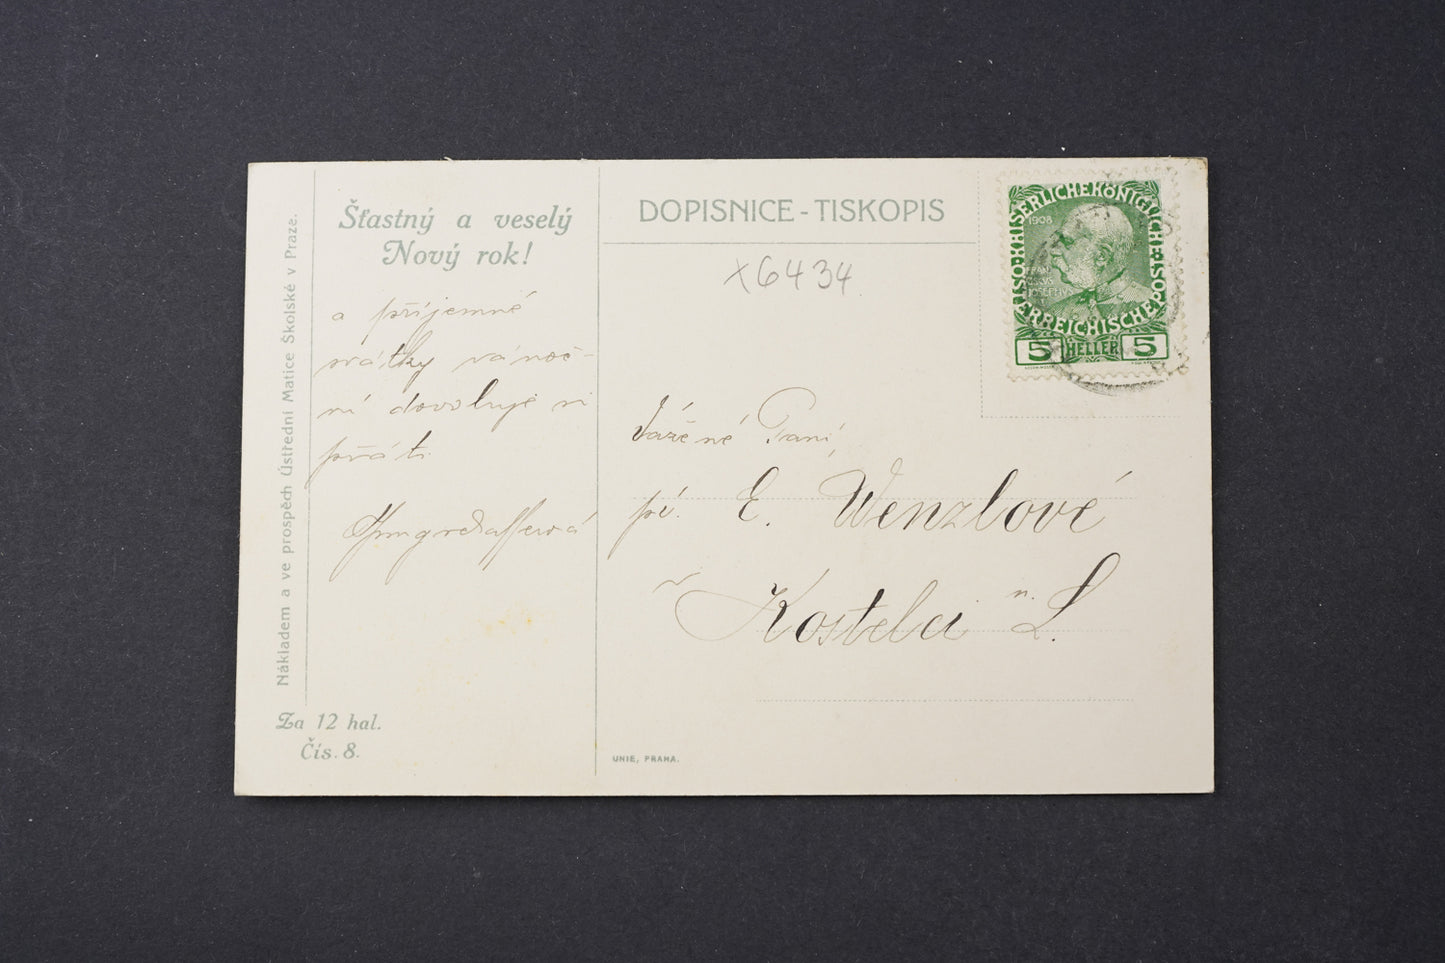 Nákladem a ve prospěch Ústřední Matice Školské v Praze.
Šťastný a veselý
Nový rok!
a příjemné
svátky vánoč-
ní dovoluje si
přáti
Za 12 hal.
Čís. 8.
DOPISNICE - TISKOPIS
x6434
KAISERLICHE KÖNIGLICHE ÖSTERREICHISCHE POST
1908
5 HELLER 5
Vážené Paní,
pí. E. Wenzlové
v Kostelci n. L.
UNIE, PRAHA.